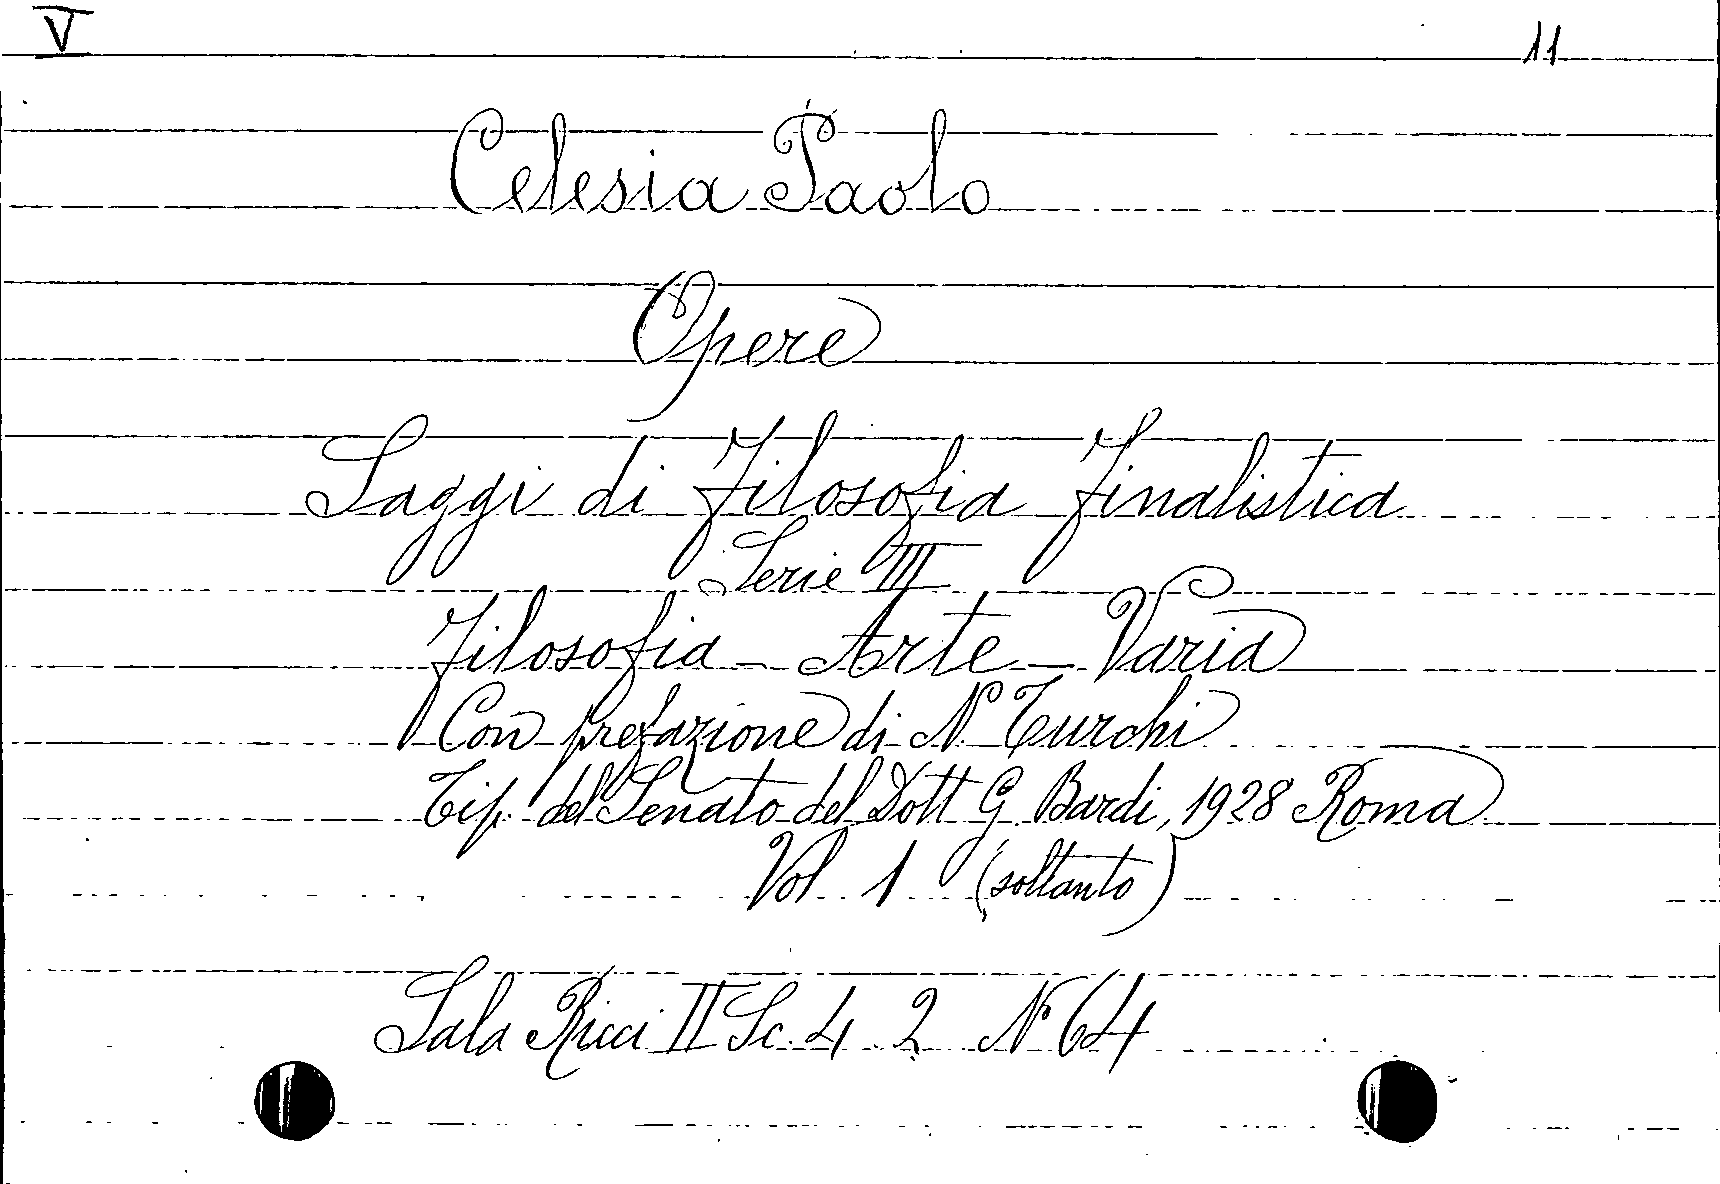 V 11
Celesia Paolo
Opere
Saggi di filosofia finalistica
Serie III
Filosofia - Arte - Varia
Con prefazione di N. Turchi
Tip. del Senato del Dott G Bardi, 1928 Roma
Vol 1 (soltanto)
Sala Ricci II Sc. 4 2 N 64